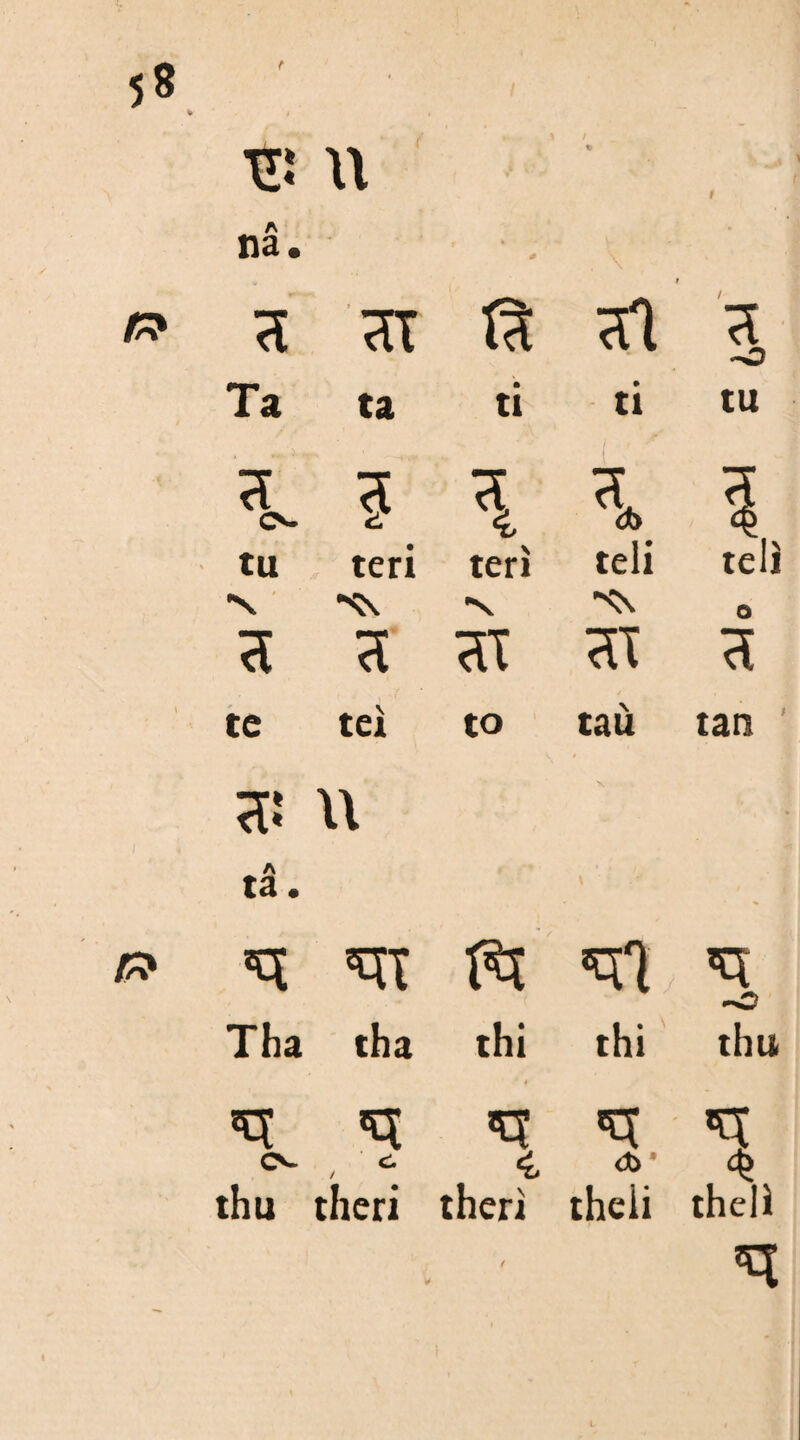 58
णः ॥
nâ.
त ता ति ती तु
Ta ta ti ti tu
तू तृ तॄ तॢ तॣ
tu teri terì teli telì
ते तै तो तौ तं
te teì to taù tan
तः ॥
tâ.
थ था थि थी थु
Tha tha thi thi thu
थू थृ थॄ थॢ थॣ
thu theri therì theli thelì
थ